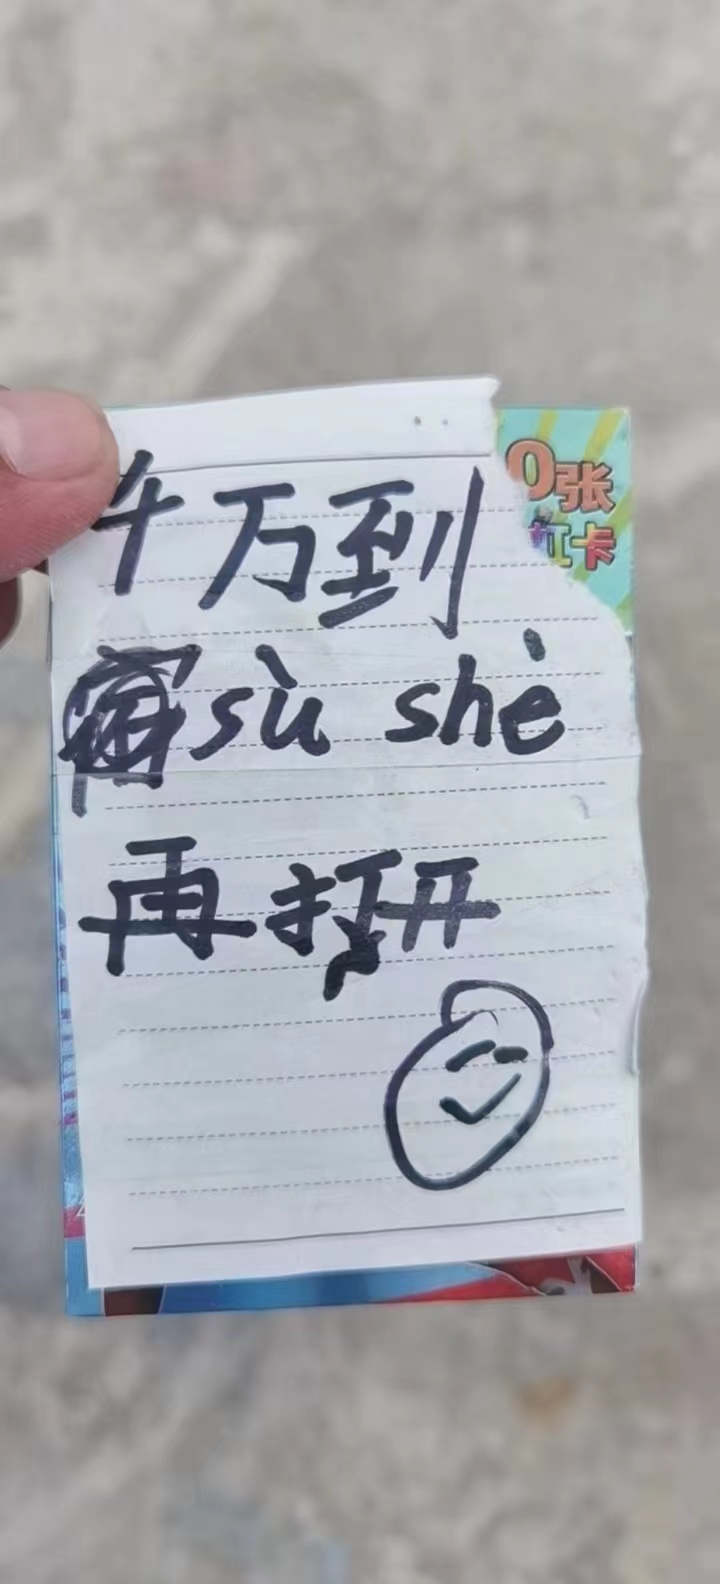 千万到
sù shè
再打开
0张
虹卡